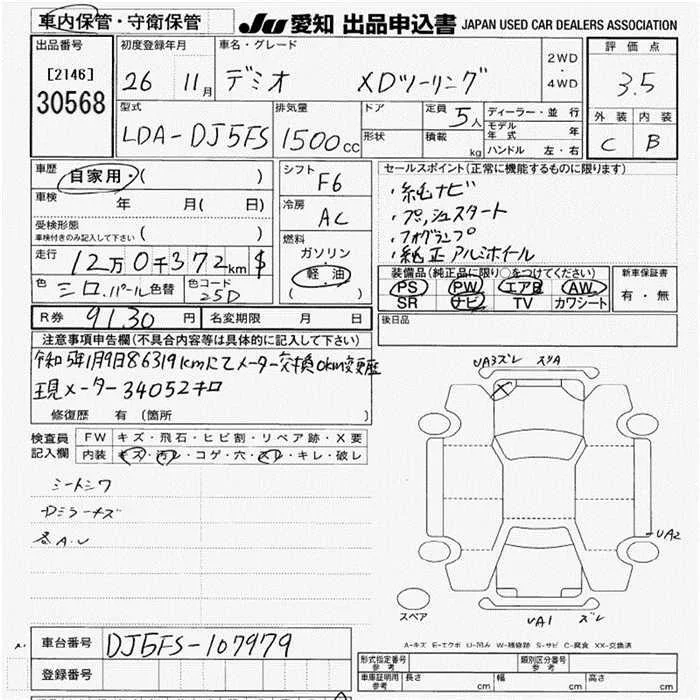 車内保管・守衛保管
JU 愛知 出品申込書 JAPAN USED CAR DEALERS ASSOCIATION
出品番号
[2146]
30568
初度登録年月
26 11月
車名・グレード
デミオ XDツーリング
2WD
・
4WD
評価点
3.5
外装 内装
C B
型式
LDA-DJ5FS
排気量
1500cc
ドア
形状
定員 5人
積載 kg
ディーラー・並行
モデル年式 年
ハンドル 左・右
車歴
自家用・( )
車検 年 月( 日)
受検形態
車検付きのみ記入して下さい ( )
走行 12万0千372km $
色 シロ.パール 色替 色コード 25D
シフト
F6
冷房
AC
燃料
ガソリン
軽・油
( )
セールスポイント(正常に機能するものに限ります)
・純ナビ
・プッシュスタート
・フォグランプ
・純正アルミホイール
装備品(純正品に限り○をつけてください)
PS PW エアB AW
SR ナビ TV カワシート
新車保証書
有・無
R券 9130円 名変期限 月 日
後日品
注意事項申告欄(不具合内容等は具体的に記入して下さい)
令和5年1月9日86319kmにてメーター交換0km変更歴
現メーター34052キロ
修復歴 有(箇所 )
検査員
記入欄
FW キズ・飛石・ヒビ割・リペア跡・X要
内装 キズ・汚レ・コゲ・穴・スレ・キレ・破レ
シートシワ
Dミラーキズ
各A.U
UA3ズレ ズリA
X
UA2
スペア
UA1 ズレ
A-キズ E-エクボ U-凹み W-補修跡 S-サビ C-腐食 XX-交換済
車台番号 DJ5FS-107979
登録番号
形式指定番号
参考
類別区分番号
参考
車庫証明用
参考
長さ cm 幅 cm 高さ cm